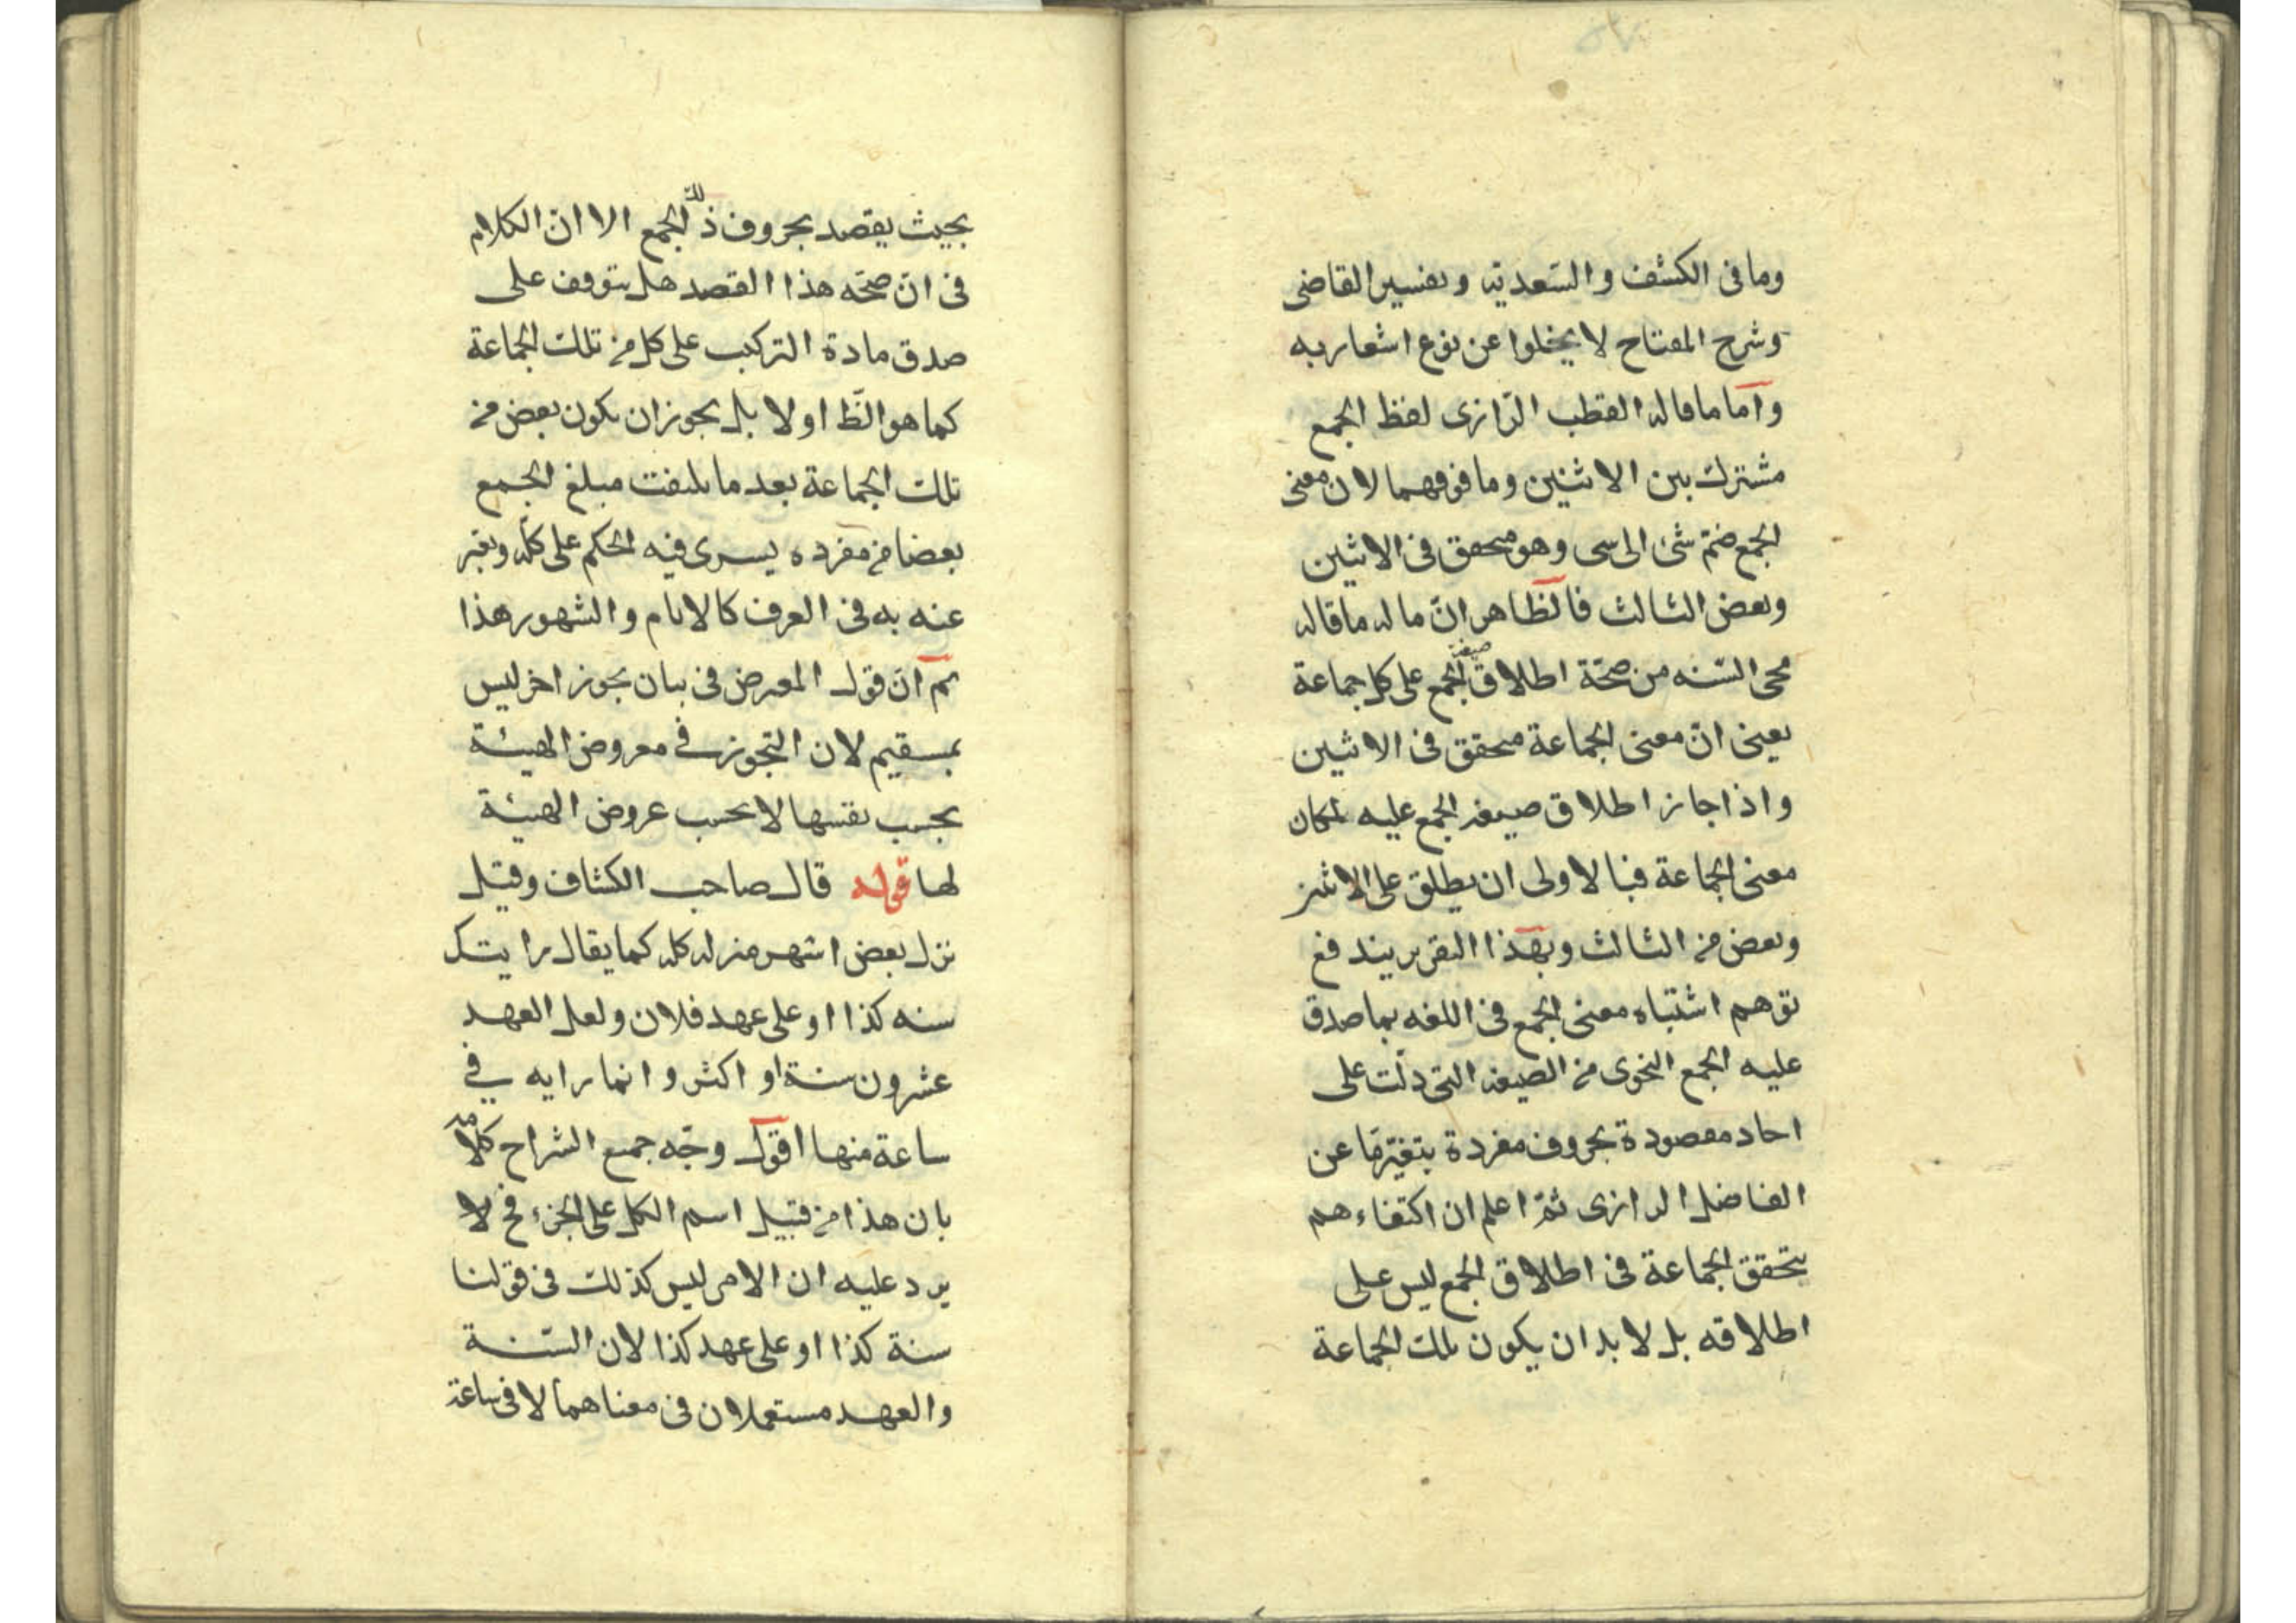 وما فى الكشف والسّعديّه وتفسير القاضى
وشرح المفتاح لا يخلوا عن نوع اشعار به
وامّا ما قاله القطب الرّازى لفظ الجمع
مشترك بين الاثنين وما فوقهما لان معنى
الجمع ضمّ شئ الى شى وهو متحقق فى الاثنين
وبعض الثالث فالظاهر انّ ماله ما قاله
محى السّنه من صحّة اطلاق صيغة الجمع على كل جماعة
يعنى انّ معنى الجماعة متحقق فى الاثنين
واذا جاز اطلاق صيغه الجمع عليه لمكان
معنى الجماعة فبالاولى ان يطلق على الاثنين
وبعض من الثالث وبهذا التقرير يندفع
توهم اشتباه معنى الجمع فى اللغه بما صدق
عليه الجمع النحوى من الصيغه التى دلّت على
احاد مقصودة بحروف مفردة بتغيّر مّا عن
الفاضل الرازى ثمّ اعلم ان اكتفاءهم
بتحقق الجماعة فى اطلاق الجمع ليس على
اطلاقه بل لا بد ان يكون تلك الجماعة
بحيث يقصد بحروف ذلك الجمع الا انّ الكلام
فى انّ صحّه هذا القصد هل يتوقف على
صدق مادة التركيب على كل من تلك الجماعة
كما هو الظّ او لا بل يجوز ان يكون بعض من
تلك الجماعة بعد ما بلغت مبلغ الجمع
بعضا من مفرده يسرى فيه الحكم على كلّه ويعبّر
عنه به فى العرف كالايام والشهور هذا
ثم انّ قول المعرض فى بيان تجوز اخر ليس
بمستقيم لان التجوز فى معروض الهيئة
بحسب نفسها لا بحسب عروض الهيئة
لها قوله قال صاحب الكشاف وقيل
نزل بعض اشهر منزله كله كما يقال رايتك
سنه كذا او على عهد فلان ولعل العهد
عشرون سنة او اكثر وانما رايه فى
ساعة منها اقول وجّه جميع الشراح كلامه
بان هذا من قبيل اسم الكل على الجزء فح لا
يرد عليه ان الامر ليس كذلك فى قولنا
سنة كذا او على عهد كذا لان السّنة
والعهد مستعملان فى معناهما لا فى ساعة